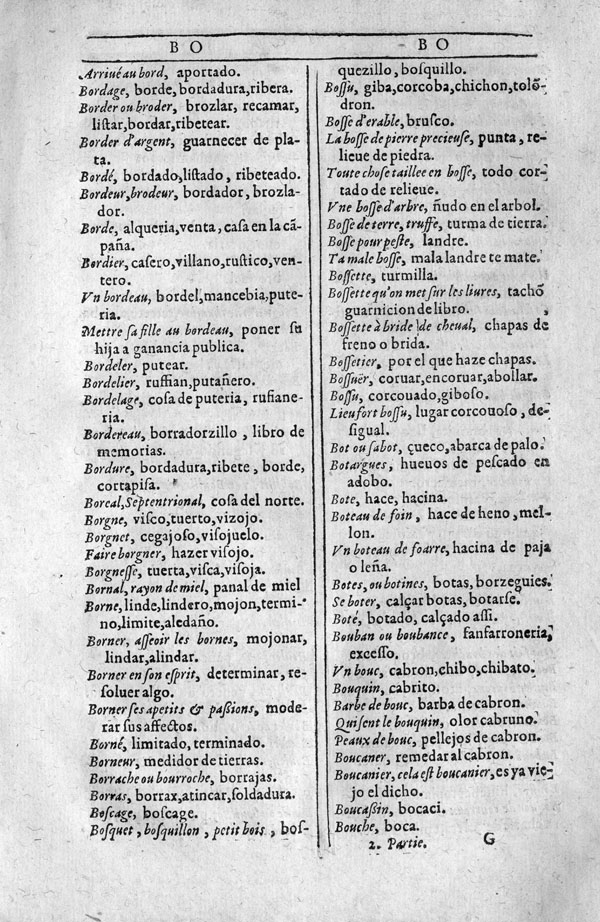 BO
Arriué au bord, aportado.
Bordage, borde, bordadura, ribera.
Border ou broder, brozlar, recamar,
liſtar, bordar, ribetear.
Border d'argent, guarnecer de pla-
ta.
Bordé, bordado, liſtado, ribeteado.
Bordeur, brodeur, bordador, brozla-
dor.
Borde, alqueria, venta, caſa en la cã-
paña.
Bordier, caſero, villano, ruſtico, ven-
tero.
Vn bordeau, bordel, mancebia, pute-
ria.
Mettre ſa fille au bordeau, poner ſu
hija a ganancia publica.
Bordeler, putear.
Bordelier, ruffian, putañero.
Bordelage, coſa de puteria, rufiane-
ria.
Bordereau, borradorzillo, libro de
memorias.
Bordure, bordadura, ribete, borde,
cortapiſa.
Boreal, Septentrional, coſa del norte.
Borgne, viſco, tuerto, vizojo.
Borgnet, cegajoſo, viſojuelo.
Faire borgner, hazer viſojo.
Borgneſſe, tuerta, viſca, viſoja.
Bornal, rayon de miel, panal de miel
Borne, linde, lindero, mojon, termi-
no, limite, aledaño.
Borner, aſſeoir les bornes, mojonar,
lindar, alindar.
Borner en ſon eſprit, determinar, re-
ſoluer algo.
Borner ſes apetits & paſſions, mode-
rar ſus affectos.
Borné, limitado, terminado.
Borneur, medidor de tierras.
Borrache ou bourroche, borrajas.
Borras, borrax, atincar, ſoldadura.
Boſcage, boſcage.
Boſquet, boſquillon, petit bois, boſ-
BO
quezillo, boſquillo.
Boſſu, giba, corcoba, chichon, tolõ-
dron.
Boſſe d'erable, bruſco.
La boſſe de pierre precieuſe, punta, re-
lieue de piedra.
Toute choſe taillee en boſſe, todo cor-
tado de relieue.
Vne boſſe d'arbre, ñudo en el arbol.
Boſſe de terre, truffe, turma de tierra.
Boſſe pour peſte, landre.
Ta male boſſe, mala landre te mate.
Boſſette, turmilla.
Boſſette qu'on met ſur les liures, tachõ
guarnicion de libro.
Boſſette à bride de cheual, chapas de
freno o brida.
Boſſetier, por el que haze chapas.
Boſſuër, coruar, encoruar, abollar.
Boſſu, corcouado, giboſo.
Lieu fort boſſu, lugar corcouoſo, de-
ſigual.
Bot ou ſabot, çueco, abarca de palo.
Botargues, hueuos de peſcado en
adobo.
Bote, hace, hacina.
Boteau de foin, hace de heno, mel-
lon.
Vn boteau de foarre, hacina de paja
o leña.
Botes, ou botines, botas, borzeguies.
Se boter, calçar botas, botarſe.
Boté, botado, calçado aſſi.
Bouban ou boubance, fanfarroneria,
exceſſo.
Vn bouc, cabron, chibo, chibato.
Bouquin, cabrito.
Barbe de bouc, barba de cabron.
Qui ſent le bouquin, olor cabruno.
Peaux de bouc, pellejos de cabron.
Boucaner, remedar al cabron.
Boucanier, cela eſt boucanier, es ya vie-
jo el dicho.
Boucaſſin, bocaci.
Bouche, boca.
2. Partie. G